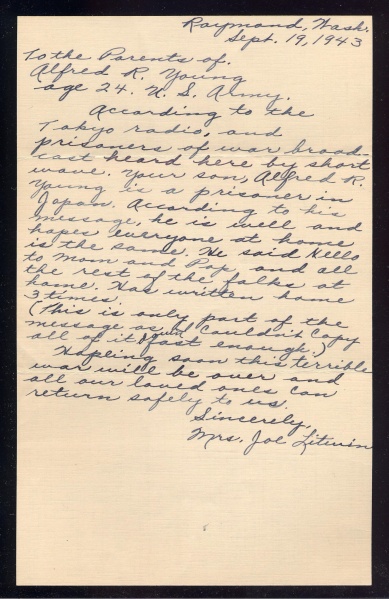 Raymond, Wash.
Sept. 19, 1943
To the Parents of.
Alfred R. Young
age 24. U. S. Army.
According to the
Tokyo radio, and
prisoners of war broad-
cast heard here by short
wave. Your son, Alfred R.
Young is a prisoner in
Japan. According to his
message, he is well and
hopes everyone at home
is the same. He said Hello
to Mom and Pop and all
the rest of the folks at
home. Has written home
3 times.
(This is only part of the
message as I couldn't copy
all of it down fast enough.)
Hopeing soon this terrible
war will be over and
all our loved ones can
return safely to us.
Sincerely,
Mrs. Joe Litwin